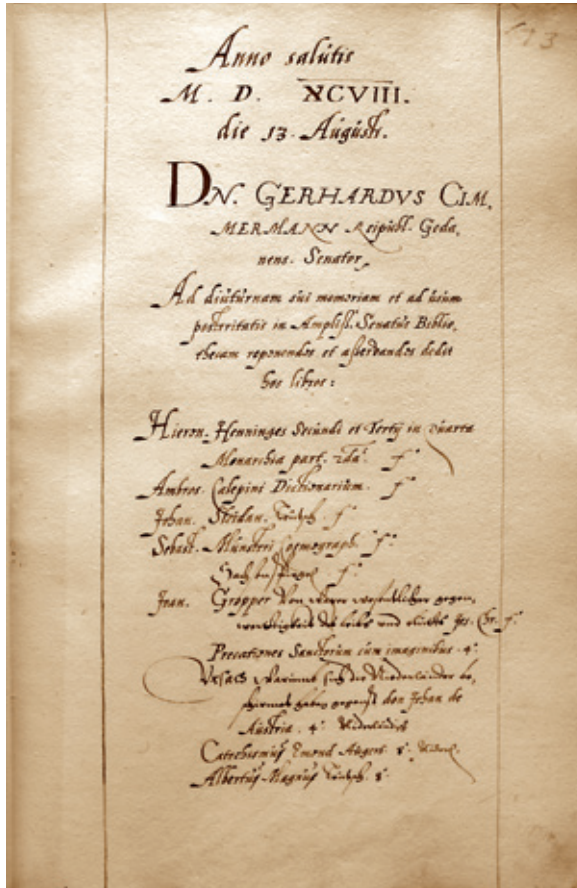 173
Anno salutis
M. D. XCVIII.
die 13. Augusti.
DN. GERHARDVS CIM,
MERMANN Reipubl. Geda,
nens. Senator,
Ad diuturnam sui memoriam et ad usum
posteritatis in Ampliss. Senatus Biblio,
thecam reponendos et asservandos dedit
hos libros:
Hieron. Henninges Secundi et Tertij in quarta
Monarchia part. 2da. f°
Ambros. Calepini Dictionarium. f°
Johan. Sleidan. Teutsch. f°
Sebast. Münsteri Cosmograph. f°
Sachsenspiegel f°
Joan. Gropper Von warer wesentlicher gegen,
wertigkeit des leibs und bluts Jes. Chr. f°
Precationes Sanctorum cum imaginibus. 4°
Ursach Warumb sich die Niederländer be,
schirmet haben gegenst don Johan de
Austria. 4°. Niderländisch
Catechismus Emond Augers. 8°.
Albertus Magnus Teutsch. 8°